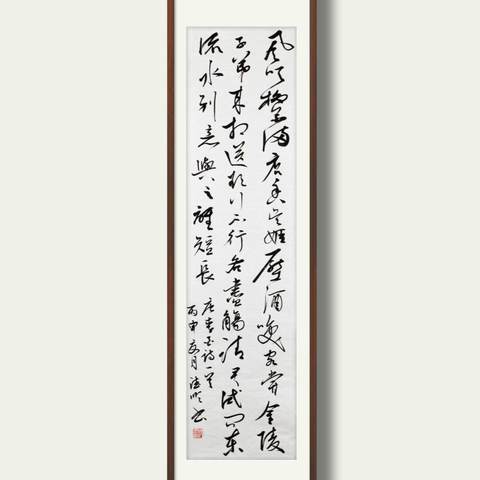 風吹柳花滿店香吳姬壓酒喚客嘗金陵
子弟來相送欲行不行各盡觴請君試問東
流水別意與之誰短長
唐李白詩一首
丙申夏月